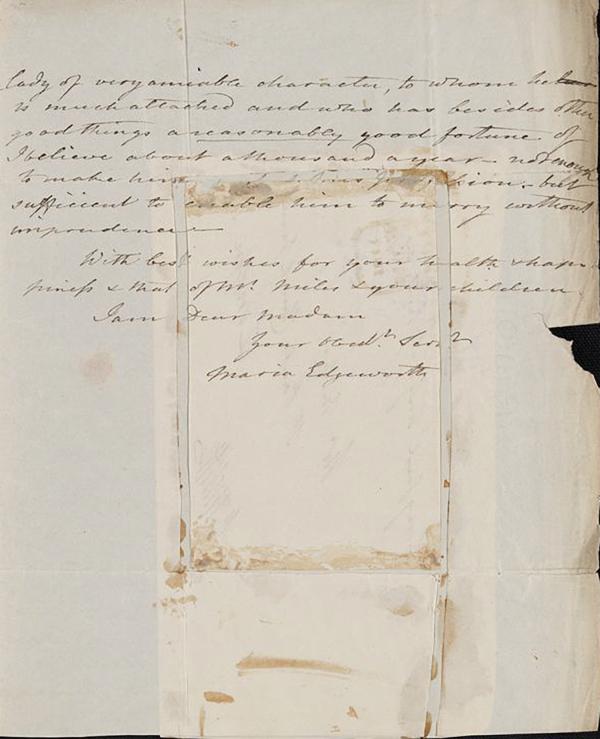 lady of very amiable character, to whom he
is much attached and who has besides other
good things a reasonably good fortune of
I believe about a thousand a year — not enough
to make him profession - but
sufficient to enable him to marry without
imprudence —
With best wishes for your health & hap
piness & that of Mr. Miles & your children
I am Dear Madam
Your Obedt. Servt
Maria Edgeworth